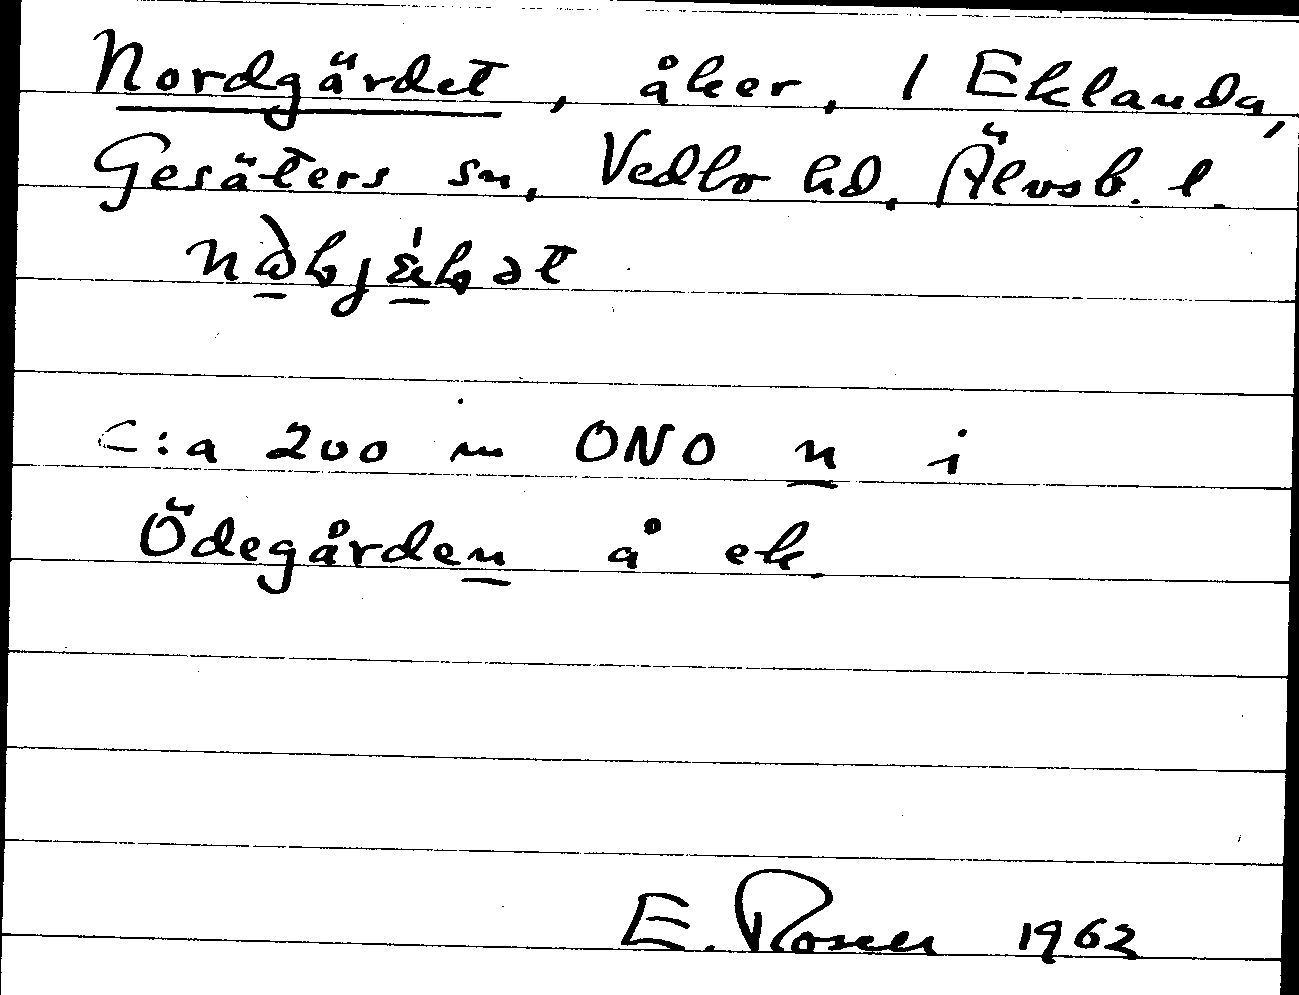 Nordgärdet, åker, 1 Eklanda,
Gesäters sn, Vedbo hd, Älvsb. l.
C:a 200 m ONO n i
Ödegården å ek.
E. Rosen 1962